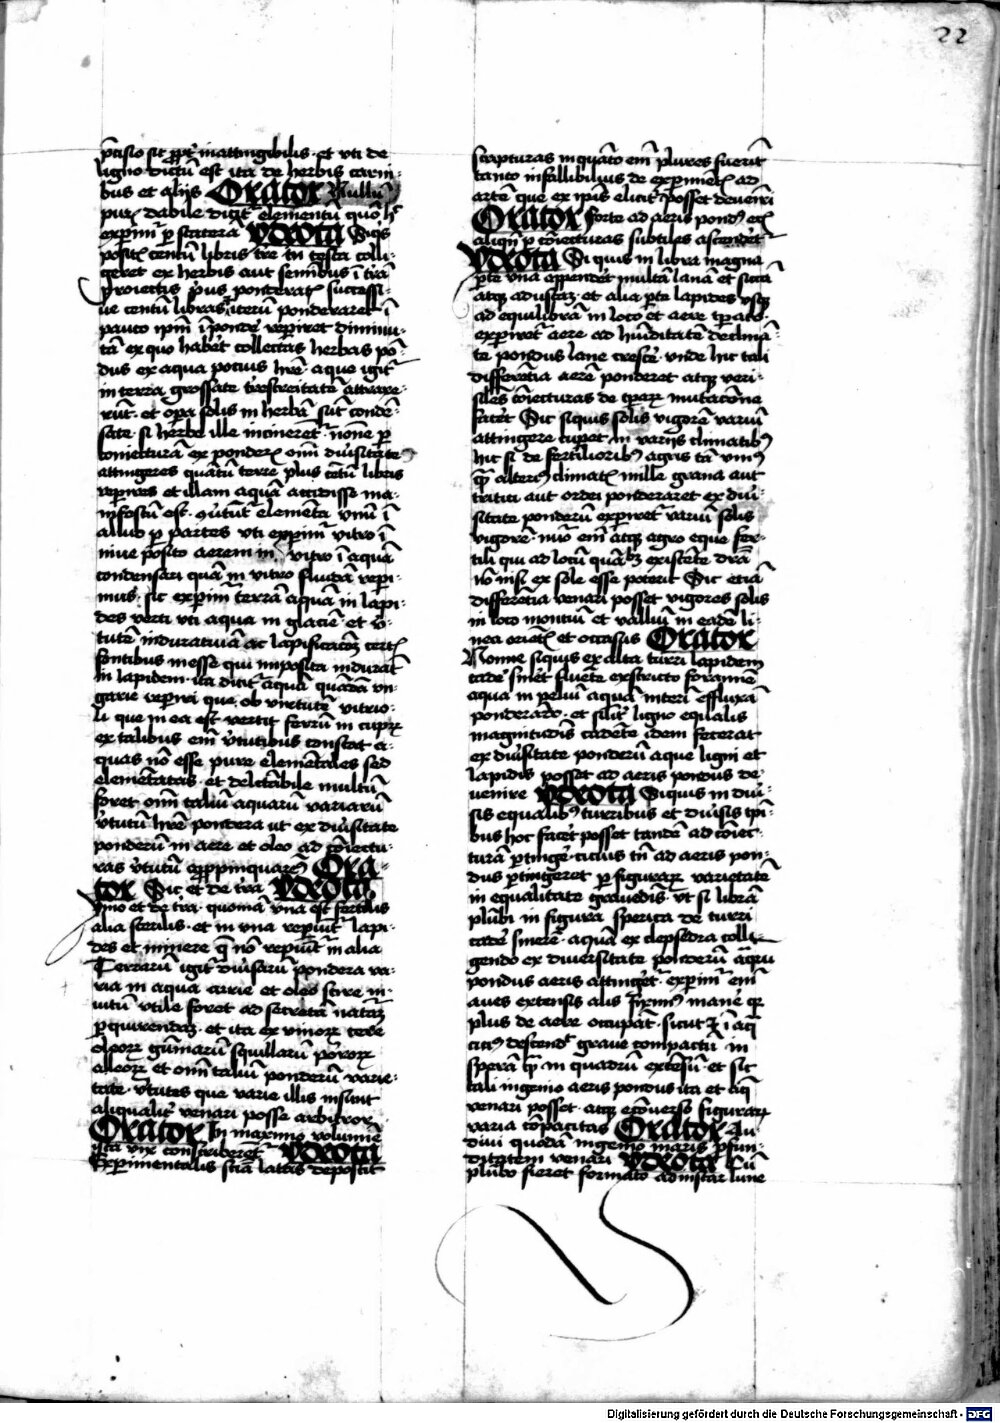 22
p̄cisio sit ꝓpt' inattingibilis · et vti de
ligno dictū est ita de herbis carni
bus et aliis Orator Nullū
purū dabile digit' elementū quō hͨ
experim̄ p statera ydiota Siqͥs
posit' centū libris tre in testa colli
geret ex herbis aut seminibus ī trā
proiectis pͥus ponderat' successi
ue centū libras iterū ponderaret ī
pauco ipm̄ ī pondē reperiret diminu
tā ex quo habet collectas herbas pō
dus ex aqua pocius hr̄e · aque igit'
in terra grossate trestreitatē attraxe
rūt · et opa solis in herbā sūt conde
sate · si herbe ille incinerēt' nōne p
coniecturā ex ponderꝭ oīm diūsitate
attingeres quātū terre plus cētū libris
reperires et illam aquā attulisse ma
nifestū est · 9ūtūt' elementa vnū ī
aliud p partes vti experim̄ vitro ī
niue posito aerem in vitro ī aquā
condensari quā in vitro fluidā repi
mus · sic experim̄ terrā aquā in lapi
des verti vti aqua in glaciē · et ꝟ
tutē induratiuā ac lapificatōꝫ certꝭ
fontibus inesse qui imposita indurat'
in lapidem · ita dicit' aquā quādā vn
garie reperiri que ob virtutē vitrio
li que in ea est vertit ferrū in cupꝝ
ex talibus em̄ ꝟtutibus constat a
quas nō esse pure elemētales sed
elemētatas · et delectabile multū
foret oīm taliū aquarū variarū
ꝟtutū hr̄e pondera ut ex diūsitate
ponderū in aere et oleo ad cōiectu
ras ꝟtutū appropinquarem̄ Ora
tor Sic et de tra ydiota
ymo et de tra · quoniā vna est fertilis
alia sterilis · et in vna reperiūt' lapi
des et minere q̄ nō reperiūt' in alia
Terrarū igit' diūsarū pondera va
ria in aqua aere et oleo scire in
uicū vtile foret ad secretā naturā
pquirendā · et ita ex vinoꝝ cere
oleoꝝ gūmarū squillarū poroꝝ
alleoꝝ et oīm taliū ponderū varie
tate ꝟtutes que varie illis insunt
aliqualit' venari posse arbitror
Orator In maximo volumīe
ista vix conscriberent' ydiota
Experimentalis scīa latas deposcit
scripturas in quāto em̄ plures fuerīt
tanto infallibilius de experimētꝭ ad
artē que ex ipis elicit' posset deueniri
Orator Forte ad aeris pondꝰ etꝭ
aliqn̄ p coniecturas subtiles ascendet'
ydiota Si quis in libra magna
pte vna appendet multā lanā et siccā
atꝫ adustaꝫ · et alia pte lapides vsꝫ
ad equilibrā in loco et aere tꝑato
experiret' aere ad hūiditatē declinā
te pondus lane cresce' vnde hic tali
differētia aerē ponderet atꝫ veri
siles cōiecturas de tꝑoꝝ mutacōne
facet Sic siquis solis vigorē variū
attingere cupet in variis climatibꝰ
hic si de fertilioribꝰ agris tā vniꝰ
qͣꝫ alteriꝰ climatꝭ mille grana aut
tritici aut ordei ponderaret ex diū
sitate ponderū experiret' variū solis
vigorē · nūo em̄ atꝫ agro eque fer
tili qui ad locū quābꝫ existēte drā
nō nisi ex sole esse poterit Sic etiā
differētia venari posset vigores solis
in loco montiū et valliū in eadē li
nea orietꝭ et occasus Orator
Nonne siquis ex alta turri lapidem
cade' sinet fluete exstricto foramīe
aqua in peluī aquā interī effluxā
ponderādo · et silit' ligno equalis
magnitudīs cadēte idem fecerat
ex diūsitate ponderū aque ligni et
lapidis posset ad aeris pondus de
uenire ydiota Siquis in diū
sis equalibꝰ turribus et diūsis tpī
bus hoc facet posset tandē ad cōiec
turā ptinge' · cicius tn̄ ad aeris pon
dus ptingeret p figuraꝝ varietatē
in equalitate grauedis · vt si librā
plūbi in figura sperica de turri
cade' sinerē · aquā ex clepsedra colli
gendo ex diuersitate ponderū aqꝝ
pondus aeris attinget' · experim̄ em̄
aues extensis alis fixius manē qꝛ
plus de aere occupāt · sicut ⁊ ī aq̄
ciciꝰ descendꝭ graue compactū in
sperā qͣꝫ in quadrū extēsū · et sic
tali ingenio aeris pondus ita et aq̄
venari posset · atꝫ ecōuerso figuraꝝ
varia cōpacitas Orator Au
diui quodā ingenio maris pfun
ditatem venari ydiota Cū
plūbo fieret formato ad instar lune
Digitalisierung gefördert durch die Deutsche Forschungsgemeinschaft - DFG